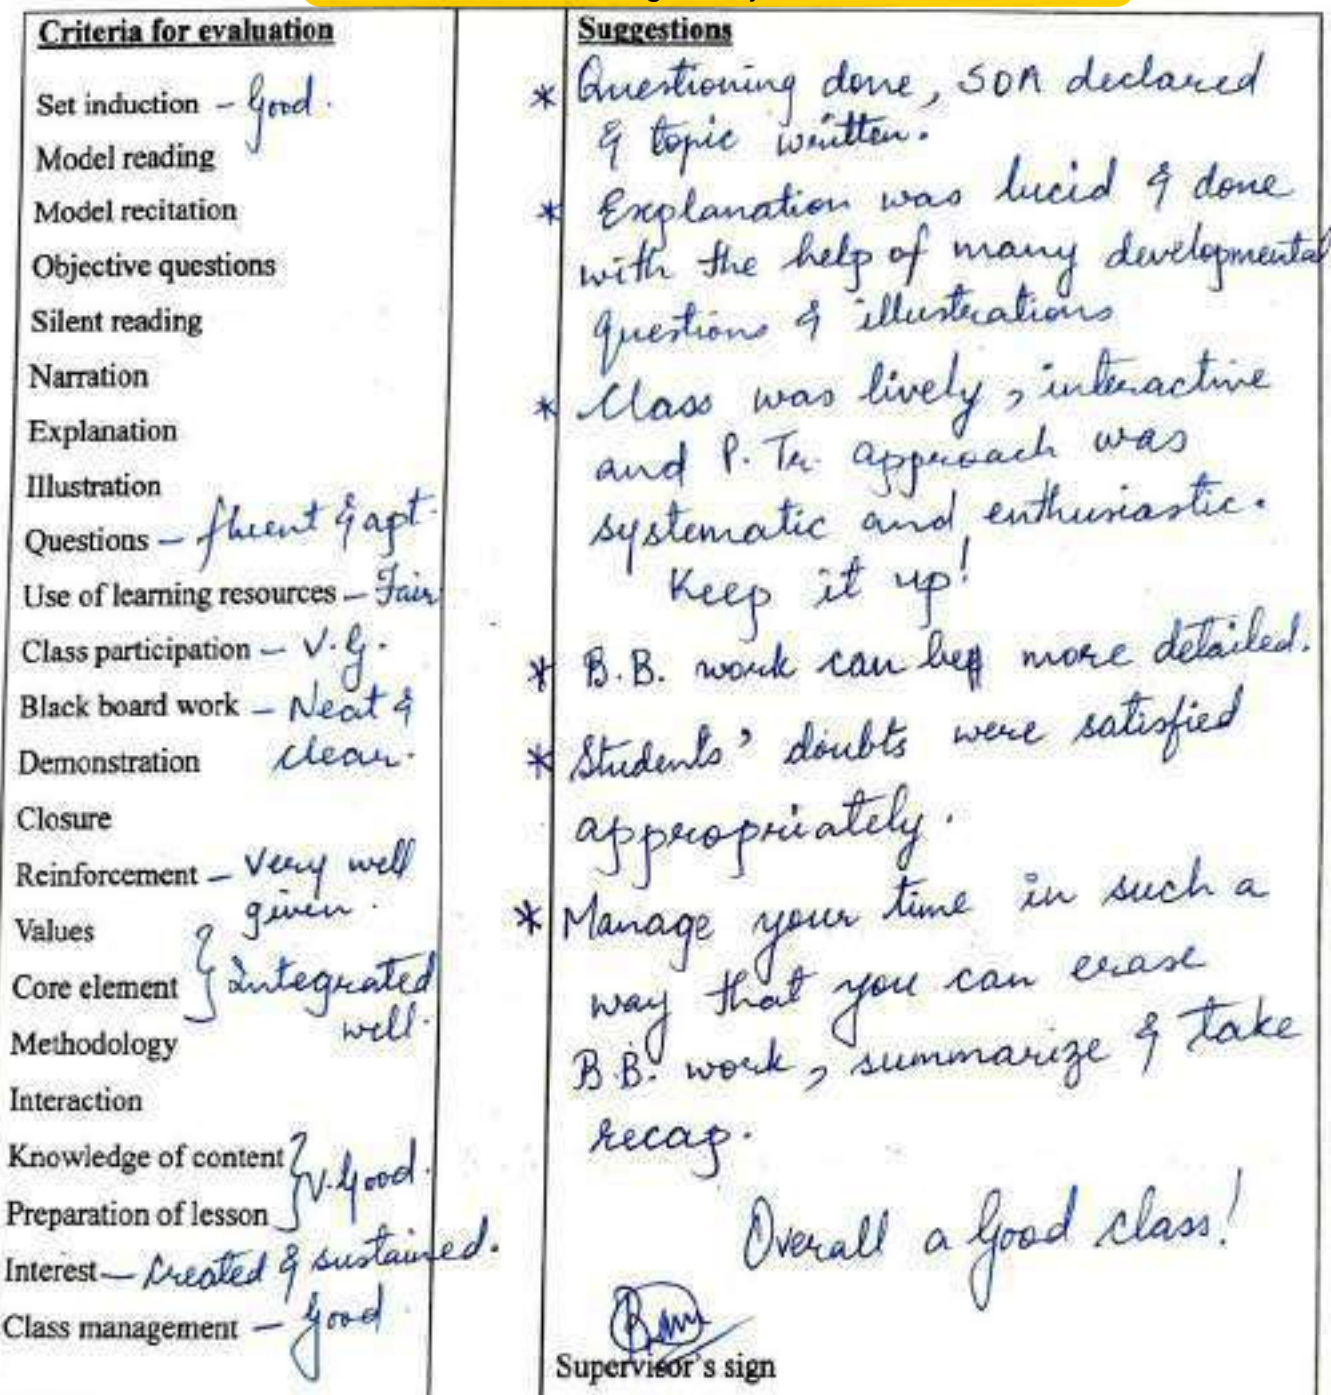 Criteria for evaluation
Set induction – Good.
Model reading
Model recitation
Objective questions
Silent reading
Narration
Explanation
Illustration
Questions – fluent & apt.
Use of learning resources – Fair
Class participation – V.G.
Black board work – Neat &
clear.
Demonstration
Closure
Reinforcement – Very well
given.
Values
Core element } Integrated
well.
Methodology
Interaction
Knowledge of content
Preparation of lesson } V. Good.
Interest – Created & sustained.
Class management – Good
Suggestions
* Questioning done, SOA declared
& topic written.
* Explanation was lucid & done
with the help of many developmental
questions & illustrations
* Class was lively, interactive
and P. Tr. approach was
systematic and enthusiastic.
Keep it up!
* B.B. work can be more detailed.
* Students' doubts were satisfied
appropriately.
* Manage your time in such a
way that you can erase
B.B. work, summarize & take
recap.
Overall a Good class!
Supervisor's sign